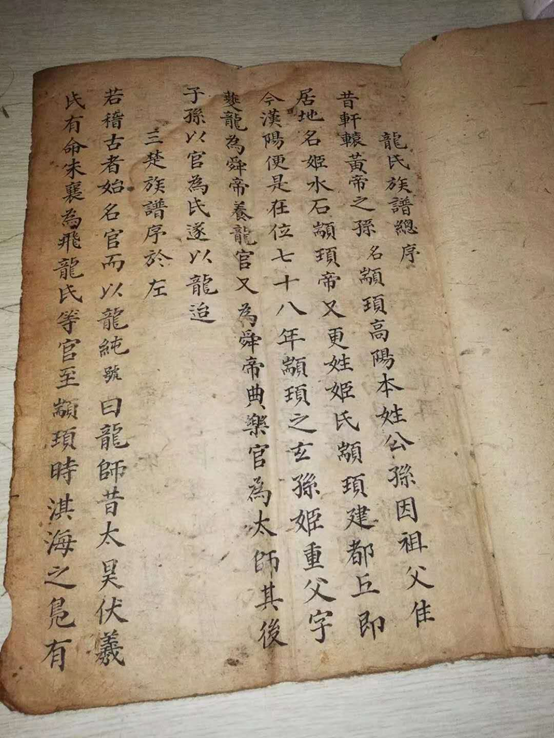 龍氏族譜總序
昔軒轅黃帝之孫名顓頊高陽本姓公孫因祖父隹
居地名姬水石顓頊帝又更姓姬氏顓頊建都丘即
今漢陽便是在位七十八年顓頊之玄孫姬重父字
龍為舜帝養龍官又為舜帝典樂官為太師其後
子孫以官為氏遂以龍迨
三楚族譜序於左
若稽古者始名官而以龍純號曰龍師昔太昊伏羲
氏有命朱襄為飛龍氏等官至顓頊時淇海之凫有